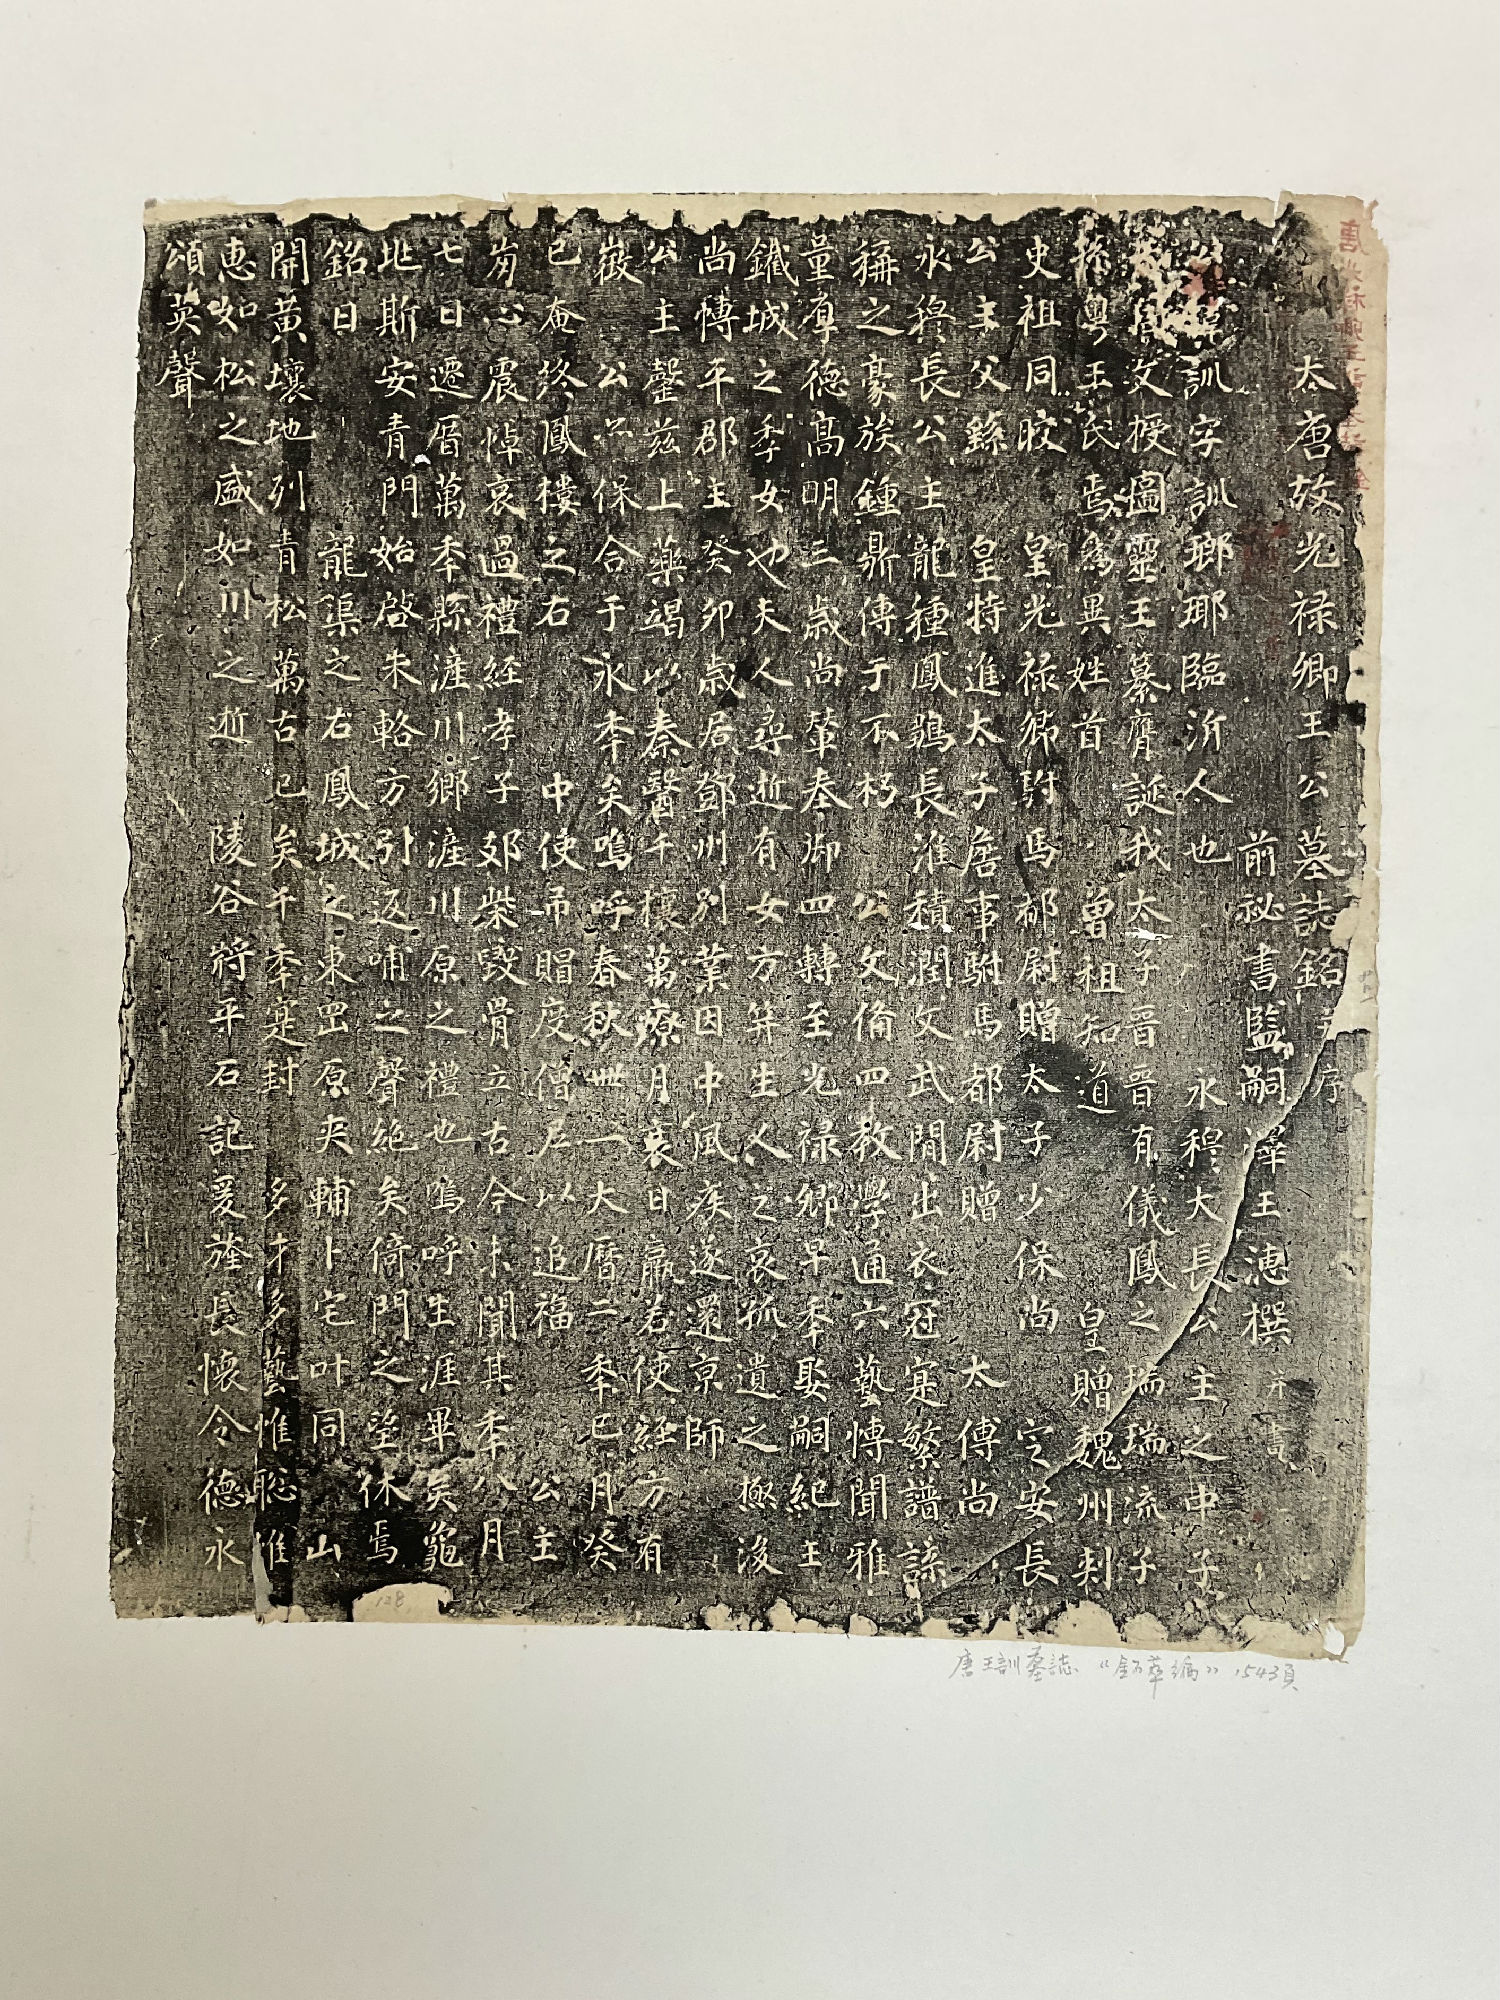 大唐故光祿卿王公墓誌銘并序
前祕書監嗣澤王潓撰并書
公諱訓字訓瑯瑘臨沂人也永穆大長公主之中子
文授圖靈王纂膺誕我太子晉晉有儀鳳之瑞瑞流子
孫粵王民焉為異姓首曾祖知道皇贈魏州刾
史祖同皎皇光祿卿駙馬都尉贈太子少保尚定安長
公主父繇皇特進太子詹事駙馬都尉贈太傅尚
永穆長公主龍種鳳鶵長淮積潤文武閒出衣冠寔繁譜諜
稱之豪族鍾鼎傳于不朽公文備四教學通六藝愽聞雅
量厚德高明三歲尚輦奉御四轉至光祿卿早年娶嗣紀王
鐵城之季女也夫人尋逝有女方笄生人之哀孤遺之極後
尚愽平郡主癸卯歲居鄧州別業因中風疾遂還京師
公主罄茲上藥竭以秦醫千禳萬療月衰日羸名使經方有
徵公亦保合于永年矣嗚呼春秋卌一大曆二年巳月癸
巳奄終鳳樓之右中使吊賵度僧尼以追福公主
崩心震悼哀過禮經孝子郊柴毀骨立古今未聞其年八月
七日遷厝萬年縣滻川鄉滻川原之禮也嗚呼生涯畢矣龜
兆斯安青門始啓朱輅方引返哺之聲絕矣倚門之望休焉
銘曰龍渠之右鳳城之東罡原夾輔卜宅叶同山
開黃壤地列青松萬古已矣千年寔封多才多藝惟聡惟
惠如松之盛如川之逝陵谷將平石記爰旌長懷令德永
頌英聲
唐王訓墓誌 1543頁
128